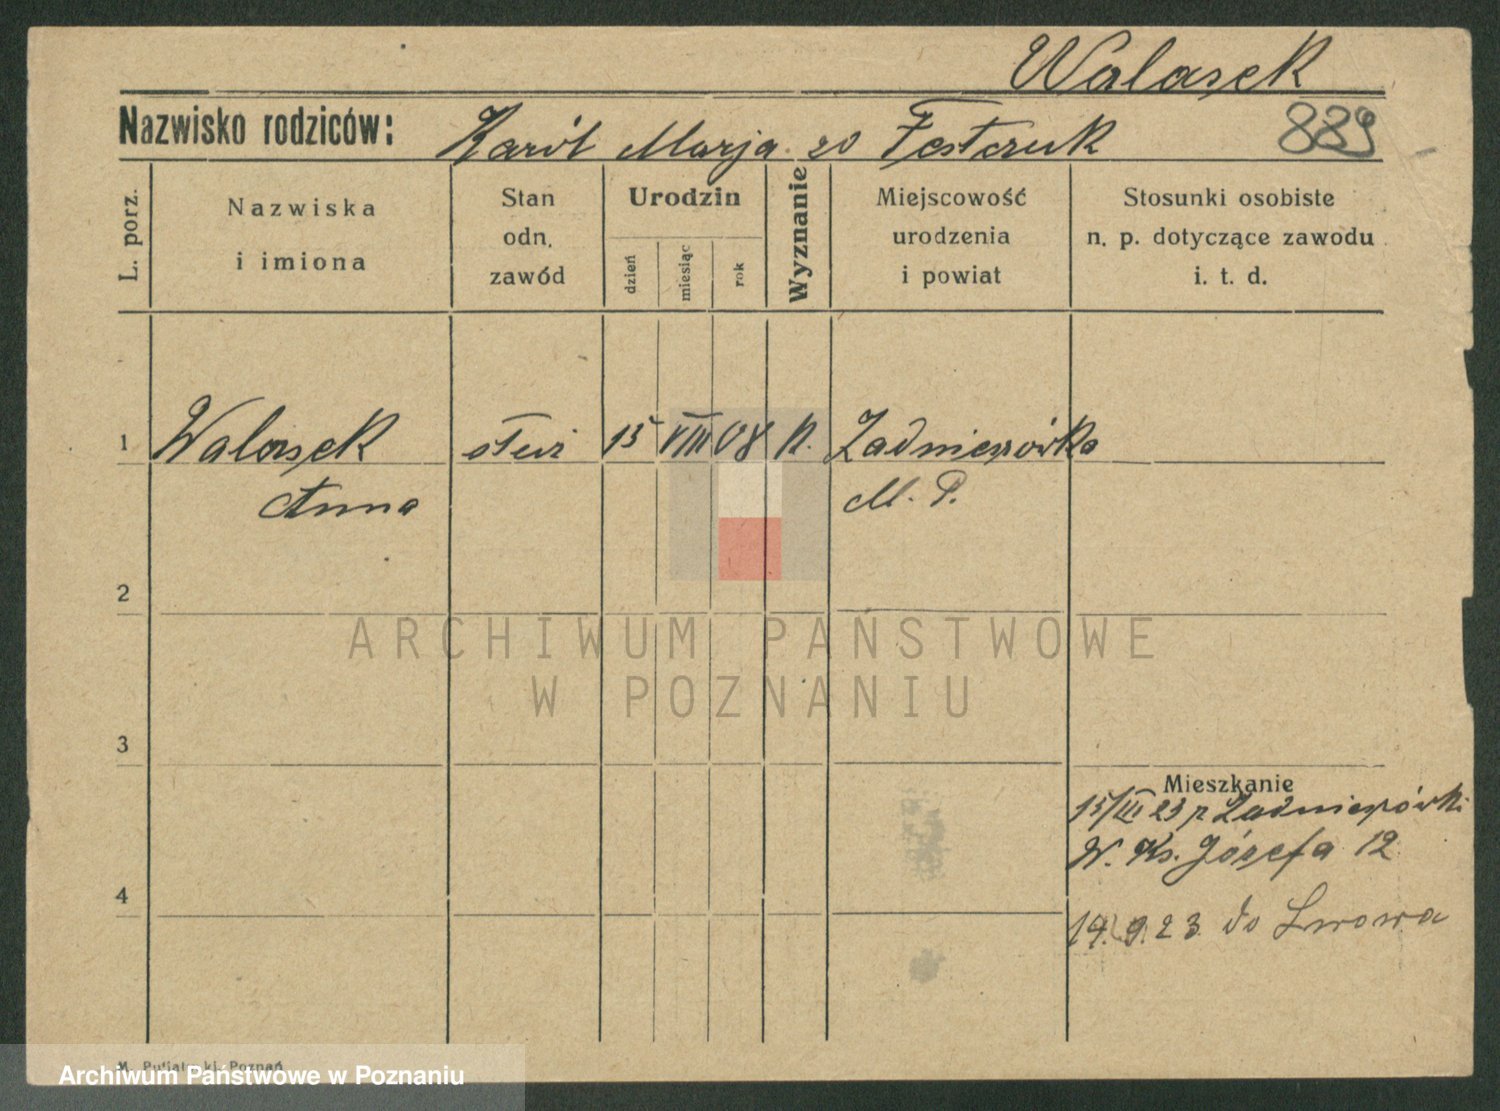 Walasek
Nazwisko rodziców: Karól Marja zo Festczuk
889
L. porz.
Nazwiska
i imiona
Stan
odn.
zawód
Urodzin
dzień
miesiąc
rok
Wyznanie
Miejscowość
urodzenia
i powiat
Stosunki osobiste
n. p. dotyczące zawodu
i. t. d.
1 Walasek 15 VIII 08 k. Zadnieszówka
Anna M. P.
2
ARCHIWUM PAŃSTWOWE
W POZNANIU
3
Mieszkanie
15/III 23 z Zadnieszówki
W. Ks. Józefa 12
4
14. 9. 23 do Lwowa
Poznań
Archiwum Państwowe w Poznaniu